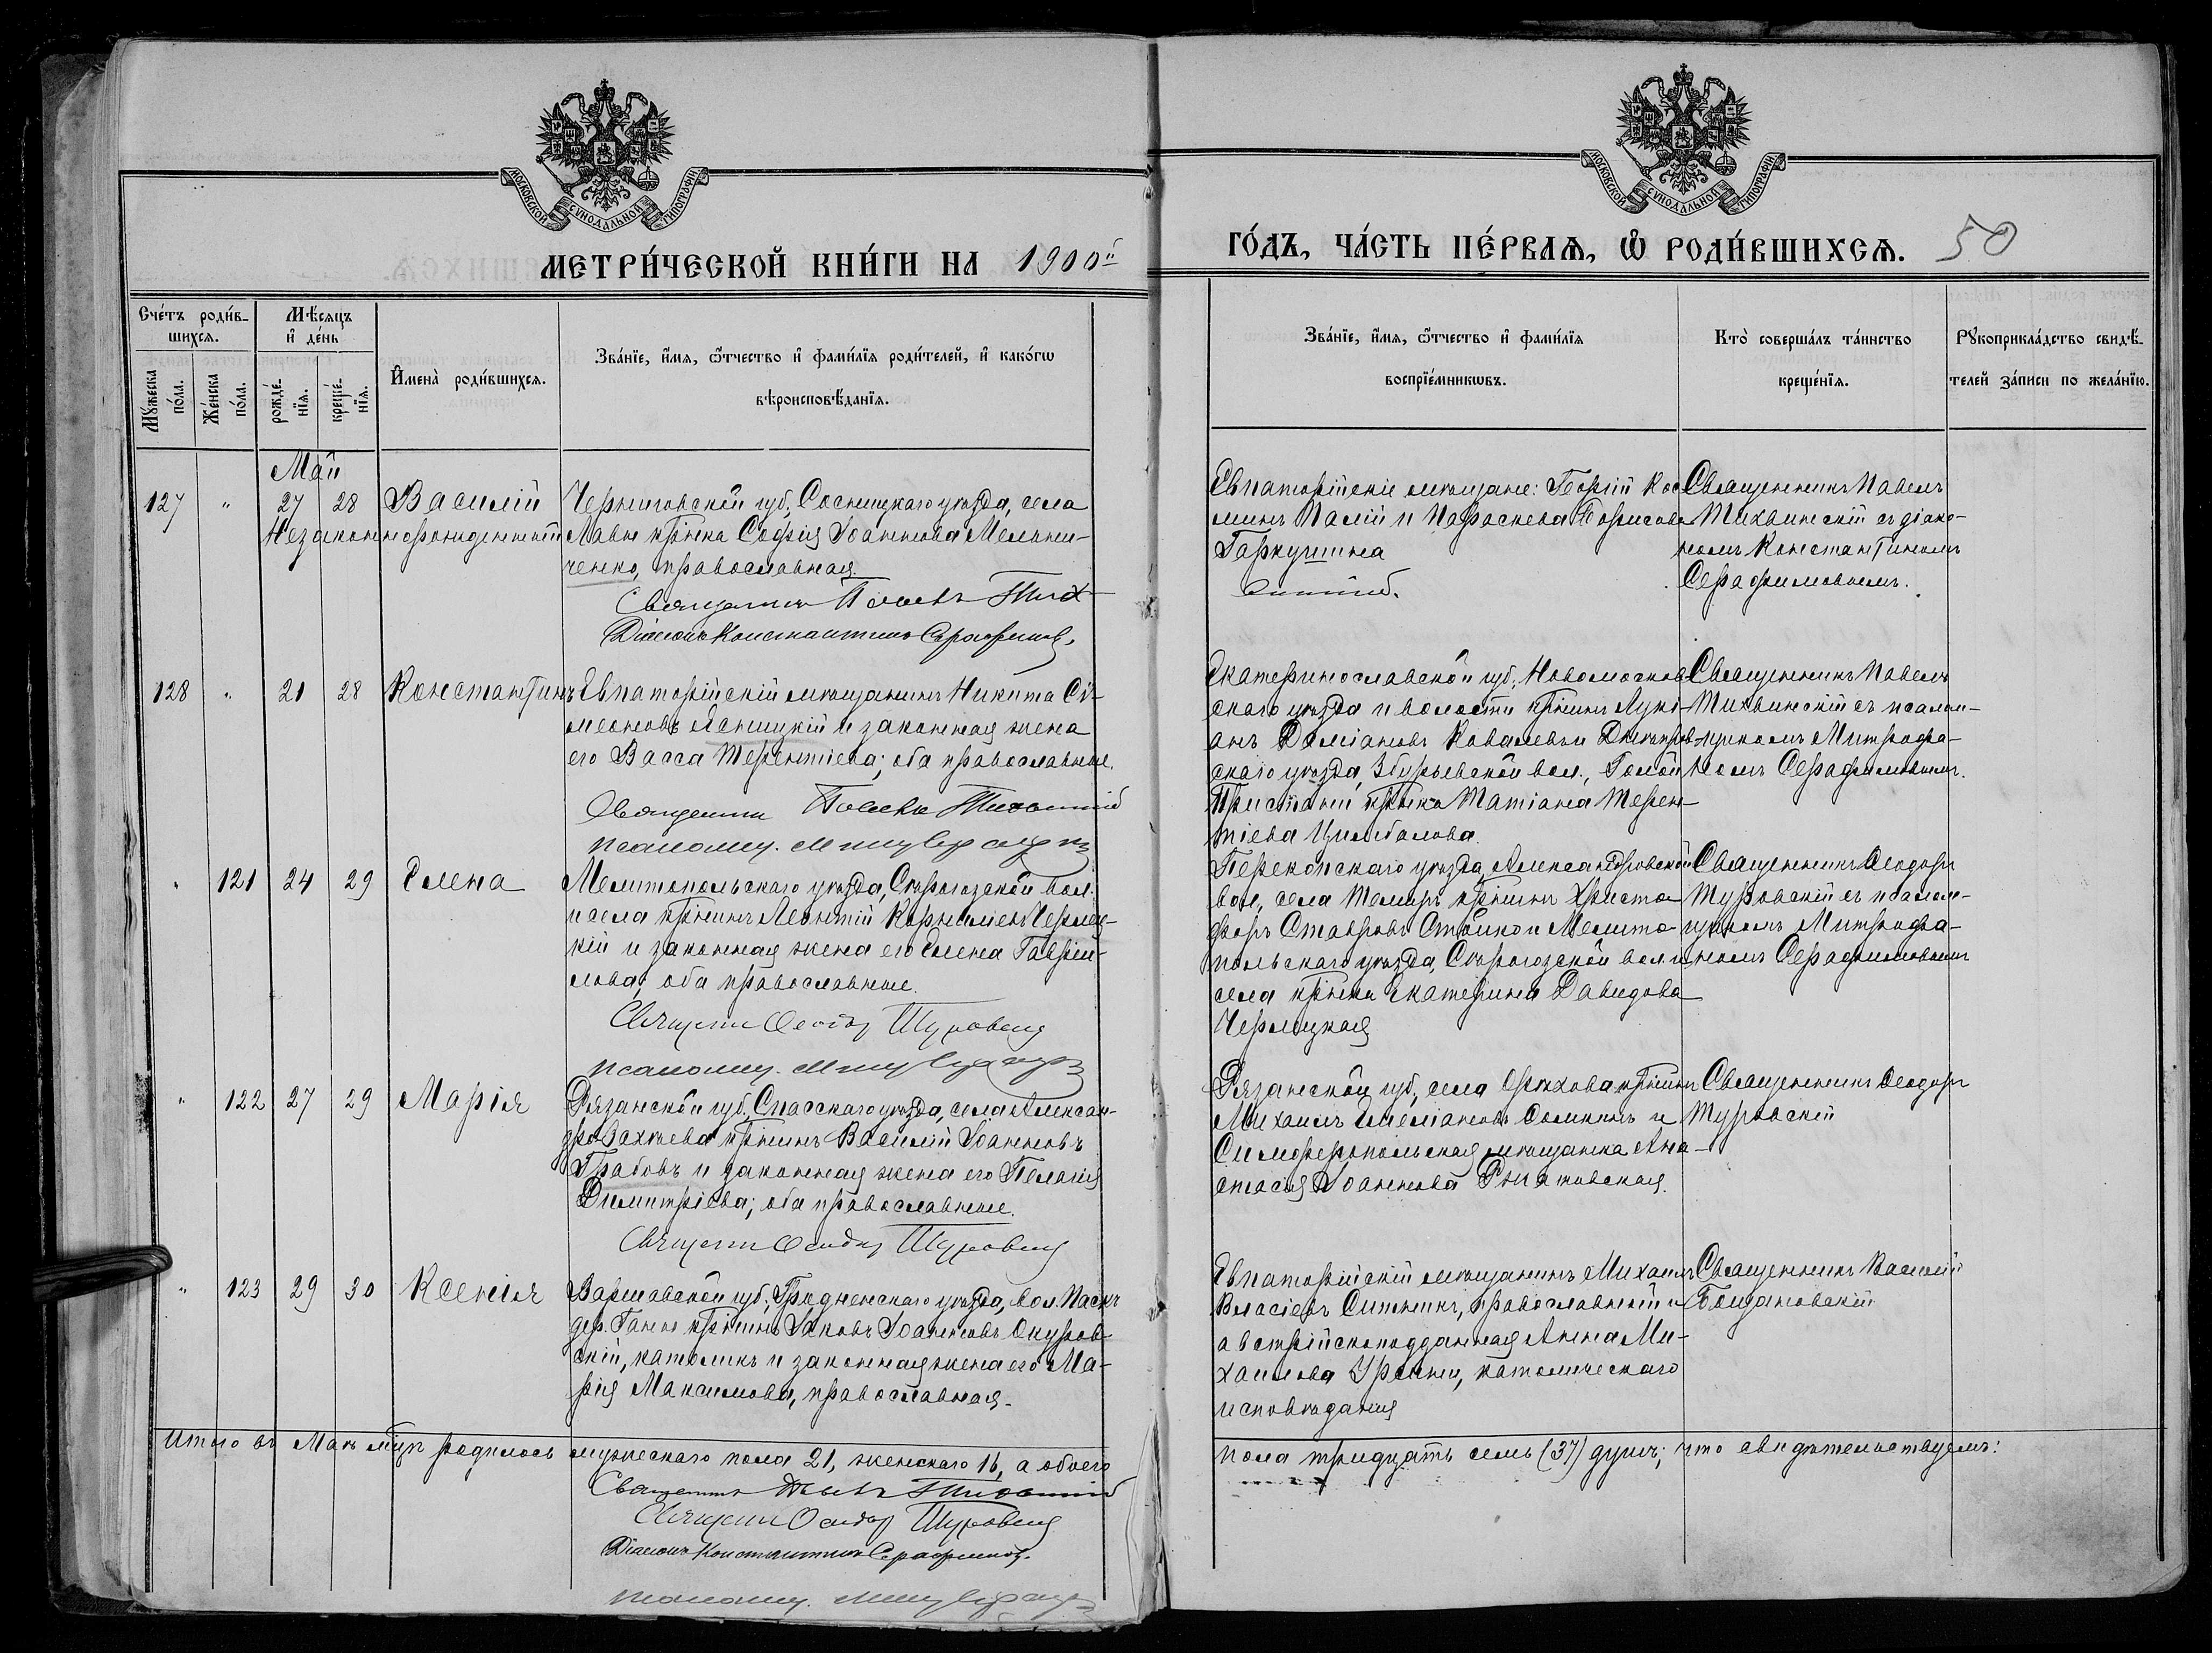 МОСКОВСКОЙ СѴНОДАЛЬНОЙ ТИПОГРАФІИ
МОСКОВСКОЙ СѴНОДАЛЬНОЙ ТИПОГРАФІИ
МЕТРИ́ЧЕСКОЙ КНИ́ГИ НА 1900й
ГО́ДЪ, ЧА́СТЬ ПЕ́РВАѦ, Ѡ҆ РОДИ́ВШИХСѦ. 50
Сче́тъ роди́в-
шихсѧ.
Мѣ́сѧцъ
и҆ де́нь
Мꙋ́жеска по́ла.
Же́нска по́ла.
рожде́-
нїѧ.
креще́-
нїѧ.
И҆мена̀ роди́вшихсѧ.
Зва́нїе, и҆́мѧ, ѻ҆́тчество и҆ фами́лїѧ роди́телей, и҆ како́гѡ
вѣроисповѣ́данїѧ.
Зва́нїе, и҆́мѧ, ѻ҆́тчество и҆ фами́лїѧ
воспрїе́мникѡвъ.
Кто̀ соверша́лъ та́инство
креще́нїѧ.
Рꙋкоприкла́дство свидѣ́-
телей за́писи по жела́нїю.
Май
127 " 27 28 Василій
Незаконнорожденный
Черниговской губ., Сосницкаго уѣзда, села
Лавы кр–нка Софія Іоаннова Мельни-
ченко, православная.
Священникъ Павелъ Тих
Діаконъ Константинъ Серафимов.
Евпаторійскіе мѣщане: Георгій Кос
минъ Палій и Параскева Борисова
Гаркушина
Священникъ Павелъ
Тихвинскій съ діако-
номъ Константиномъ
Серафимовымъ.
128 " 21 28 Константинъ
Евпаторійскій мѣщанинъ Никита Сѵ-
меоновъ Яницкій и законная жена
его Васса Терентіева; оба православные.
Священникъ Павелъ Тихвинскій
псаломщ.
Екатеринославской губ., Новомосков
скаго уѣзда и волости кр–нинъ Луки-
анъ Даміановъ Ковалевъ и Днѣпров
скаго уѣзда, Збурьевской вол., Голой
Пристани, кр–нка Татіана Терен-
тіева Цымбалова.
Священникъ Павелъ
Тихвинскій съ псалом-
щикомъ Митрофа-
номъ Серафимовымъ.
" 121 24 29 Елена
Мелитопольскаго уѣзда, Серогозской вол.
и села кр–нинъ Леонтій Корниліевъ Чермец-
кій и законная жена его Елена Гаврі-
лова; оба православные.
Священникъ Ѳеодоръ Туровскій
псаломщ.
Перекопскаго уѣзда, Александровской
вол., села Темиръ кр–нинъ Христо-
форъ Ставровъ Стойко и Мелито-
польскаго уѣзда, Серогозской вол. и
села кр–нка Екатерина Давидова
Чермецкая
Священникъ Ѳеодоръ
Туровскій съ псалом-
щикомъ Митрофа-
номъ Серафимовымъ
" 122 27 29 Марія
Рязанской губ., Спасскаго уѣзда, села Алексан-
дро кр–нинъ Василій Іоанновъ
Грабовъ и законная жена его Пелагія
Димитріева; оба православные.
Священникъ Ѳеодоръ Туровскій
Рязанской губ., села кр–нинъ
Михаилъ Емеліановъ и
Симферопольская мѣщанка Ана-
стасія Іоаннова
Священникъ Ѳеодоръ
Туровскій
" 123 29 30 Ксенія
Варшавской губ., Гродненскаго уѣзда, вол. Паскъ
дер. кр–нинъ Яковъ Іоанновъ Окуров-
скій, католикъ и законная жена его Ма-
рія Максимова, православная.
Евпаторійскій мѣщанинъ Михаилъ
Власіевъ Ситникъ, православный и
австрійскоподданная Анна Ми-
хаилова католическаго
исповѣданія
Священникъ Василій
Бощановскій
Итого въ Маѣ мѣсяцѣ родилось мужескаго пола 21, женскаго 16, а обоего
пола тридцать семь (37) душъ; что свидѣтельствуемъ:
Священникъ Павелъ Тихвинскій
Священникъ Ѳеодоръ Туровскій
Діаконъ Константинъ Серафимовъ.
псаломщ.